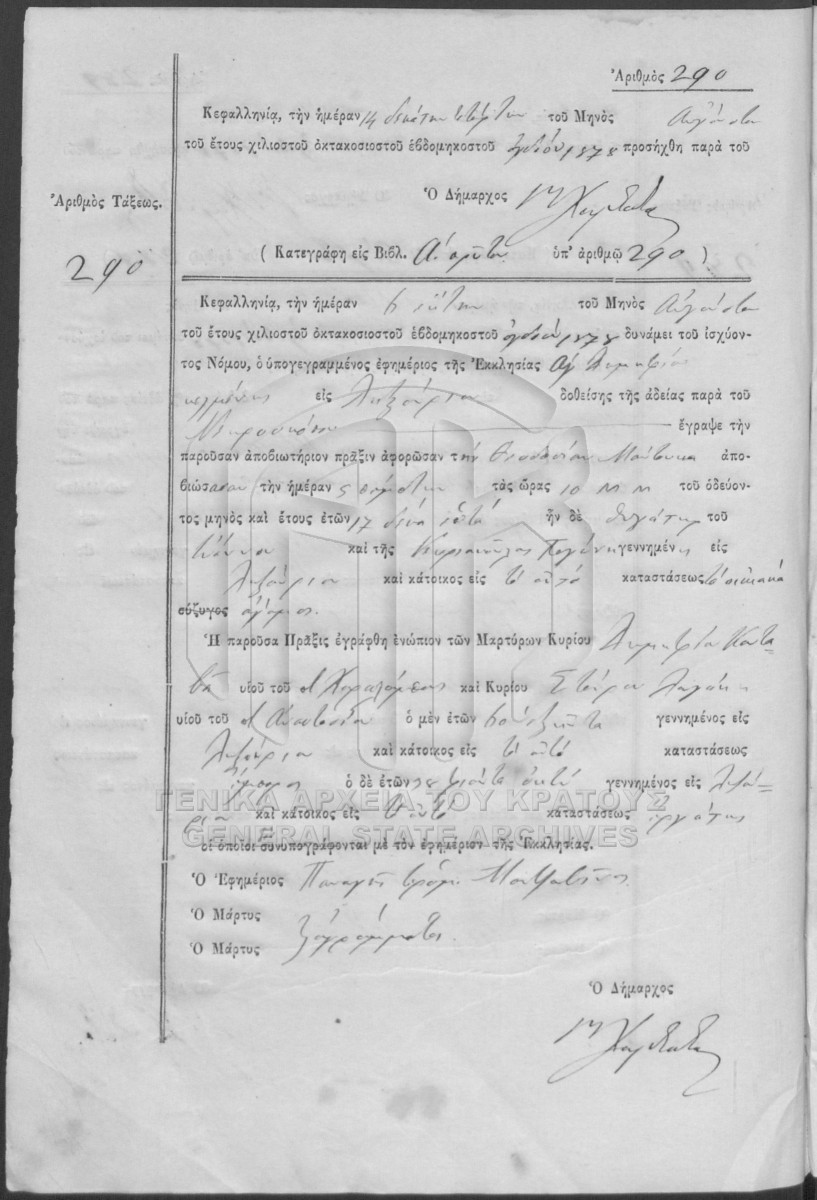 Ἀριθμὸς 290
Κεφαλληνίᾳ, τὴν ἡμέραν 14 δεκάτην τετάρτην τοῦ Μηνὸς Αὐγούστου
τοῦ ἔτους χιλιοστοῦ ὀκτακοσιοστοῦ ἑβδομηκοστοῦ ὀγδόου 1878 προσήχθη παρὰ τοῦ
Ὁ Δήμαρχος
Ἀριθμὸς Τάξεως.
290
( Κατεγράφη εἰς Βιβλ. Α. ὑπ' ἀριθμῷ 290 )
Κεφαλληνίᾳ, τὴν ἡμέραν 6 ἕκτην τοῦ Μηνὸς Αὐγούστου
τοῦ ἔτους χιλιοστοῦ ὀκτακοσιοστοῦ ἑβδομηκοστοῦ ὀγδόου 1878 δυνάμει τοῦ ἰσχύον-
τος Νόμου, ὁ ὑπογεγραμμένος ἐφημέριος τῆς Ἐκκλησίας Αγ Δημητρίου
κειμένης εἰς Ληξούριον δοθείσης τῆς ἀδείας παρὰ τοῦ
ἔγραψε τὴν
παροῦσαν ἀποβιωτήριον πρᾶξιν ἀφορῶσαν τὴν ἀπο-
βιώσασαν τὴν ἡμέραν 5 πέμπτην τὰς ὥρας 10 Μ Μ τοῦ ὁδεύον-
τος μηνὸς καὶ ἔτους ἐτῶν 17 δέκα ἑπτά ἦν δὲ θυγάτηρ τοῦ
Ἰωάννου καὶ τῆς γεννημένης εἰς
Ληξούριον καὶ κάτοικος εἰς τὸ αὐτό καταστάσεως τὰ οἰκιακά
σύζυγος ἄγαμος.
Ἡ παροῦσα Πρᾶξις ἐγράφθη ἐνώπιον τῶν Μαρτύρων Κυρίου Δημητρίου
υἱοῦ τοῦ καὶ Κυρίου Σπύρου
υἱοῦ τοῦ ὁ μὲν ἐτῶν 60 ἑξῆντα γεννημένος εἰς
Ληξούριον καὶ κάτοικος εἰς τὸ αὐτό καταστάσεως
ἔμπορος ὁ δὲ ἐτῶν 38 τριάντα ὀκτώ γεννημένος εἰς Ληξού-
ριον καὶ κάτοικος εἰς τὸ αὐτό καταστάσεως ἐργάτης
ΓΕΝΙΚΑ ΑΡΧΕΙΑ ΤΟΥ ΚΡΑΤΟΥΣ
GENERAL STATE ARCHIVES
οἱ ὁποῖοι συνυπογράφονται μὲ τὸν ἐφημέριον τῆς Ἐκκλησίας.
Ὁ Ἐφημέριος Παναγῆς
Ὁ Μάρτυς
Ὁ Μάρτυς ἀγράμματοι
Ὁ Δήμαρχος